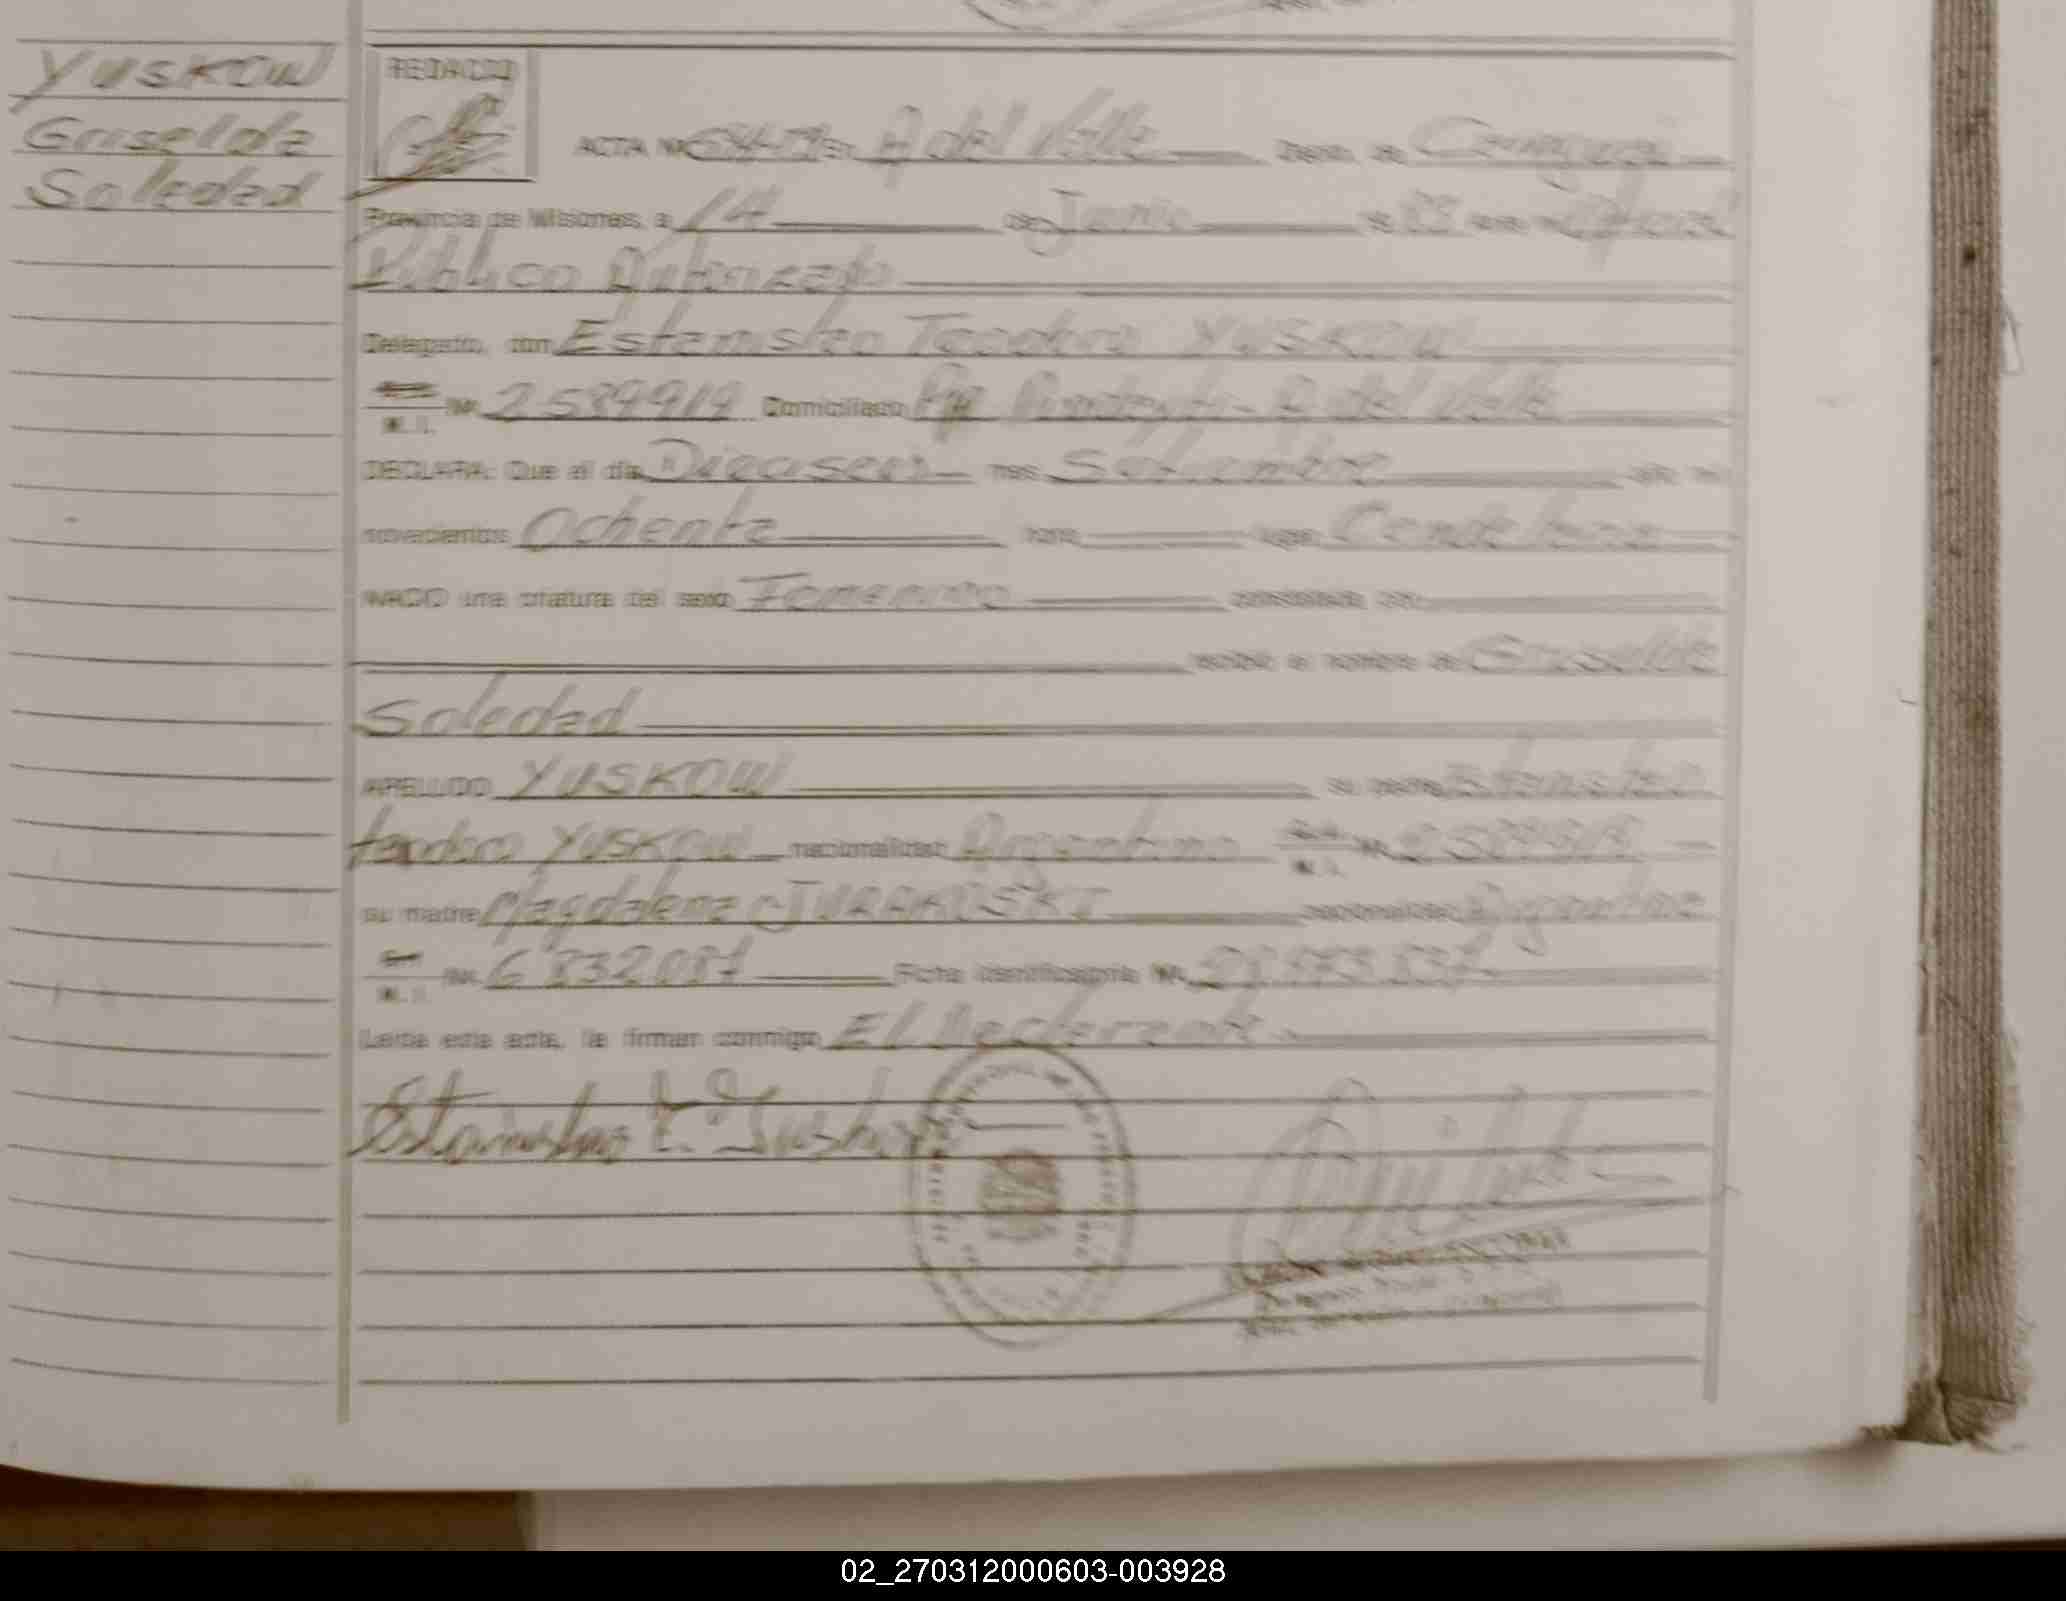 YUSKOW
Griselda
Soledad
REDACTO
ACTA Nº A del Valle Depto. de
Provincia de Misiones, a 14 de Junio de 83 ante mi Oficial
Público Autorizado
Delegado, don Estanislao Teodoro YUSKOW
Nº 2589919 Domiciliado A. del Valle
M. I.
DECLARA: Que el día Dieciseis mes Setiembre año mil
novecientos Ochenta hora lugar Candelaria
NACIO una criatura del sexo Femenino
recibió el nombre de Griselda
Soledad
APELLIDO YUSKOW su padre Estanislao
teodoro YUSKOW nacionalidad Argentino Nº 2589919
M. I.
su madre Magdalena JURAKOSKI nacionalidad Argentina
Nº 6832087 Ficha identificatoria Nº 28.573.837
M. I.
Leída esta acta, la firman conmigo El Declarante
Estanislao T. Yuskow
02_270312000603-003928